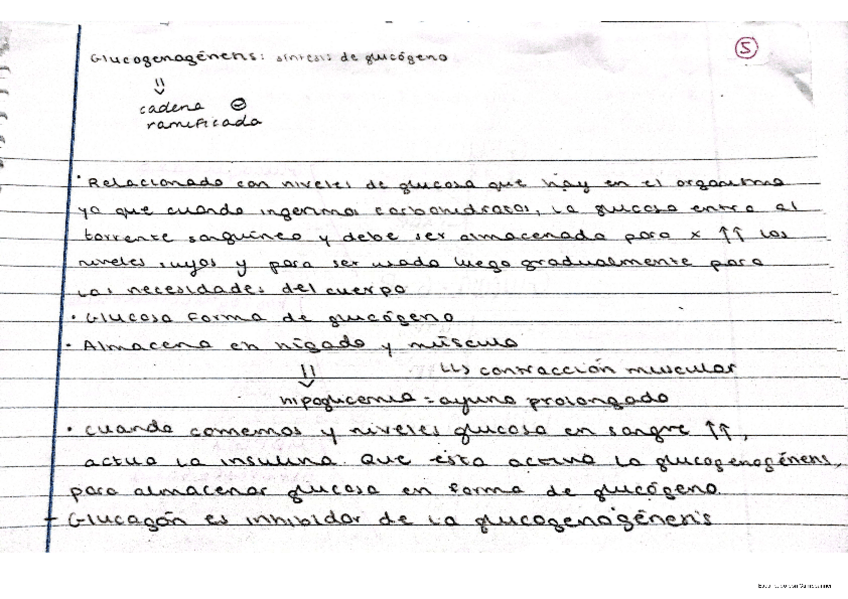 Glucogenogénesis: síntesis de glucógeno
5
⇓
cadena ⊖
ramificada
• Relacionado con niveles de glucosa que hay en el organismo
ya que cuando ingerimos carbohidratos, la glucosa entra al
torrente sanguíneo y debe ser almacenada para x ↑↑ los
niveles suyos y para ser usada luego gradualmente para
las necesidades del cuerpo
• Glucosa forma de glucógeno
• Almacena en hígado y músculo
⇓ ↳ contracción muscular
hipoglucemia = ayuno prolongado
• cuando comemos y niveles glucosa en sangre ↑↑,
actua la insulina. Que esta activa la glucogenogénesis,
para almacenar glucosa en forma de glucógeno.
- Glucagón es inhibidor de la glucogenogénesis